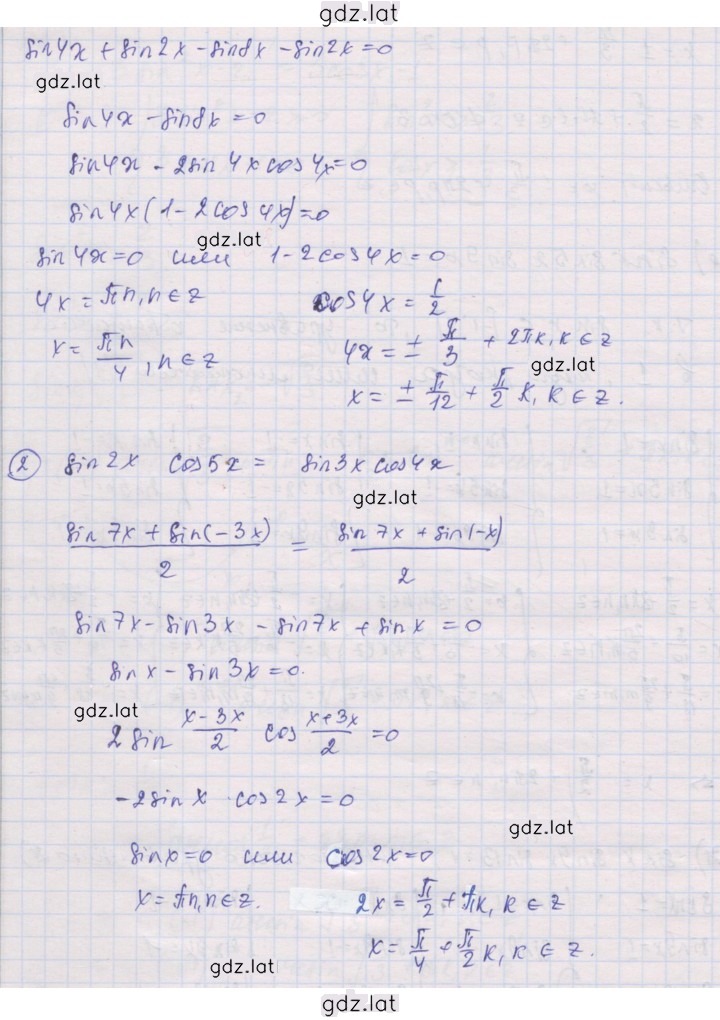 gdz.lat
sin4x + sin2x - sin8x - sin2x = 0
gdz.lat
sin4x - sin8x = 0
sin4x - 2sin 4x cos4x = 0
sin4x(1 - 2cos4x) = 0
gdz.lat
sin4x = 0 или 1 - 2cos4x = 0
4x = πn, n ∈ z cos4x = 1/2
x = πn/4, n ∈ z 4x = ± π/3 + 2πk, k ∈ z
gdz.lat
x = ± π/12 + π/2 k, k ∈ z.
② sin2x cos5x = sin3x cos4x
gdz.lat
(sin7x + sin(-3x))/2 = (sin7x + sin(-x))/2
sin7x - sin3x - sin7x + sinx = 0
sinx - sin3x = 0.
gdz.lat
2 sin (x-3x)/2 cos (x+3x)/2 = 0
-2sinx · cos2x = 0
gdz.lat
sinx = 0 или cos2x = 0
x = πn, n ∈ z. 2x = π/2 + πk, k ∈ z
x = π/4 + π/2 k, k ∈ z.
gdz.lat
gdz.lat